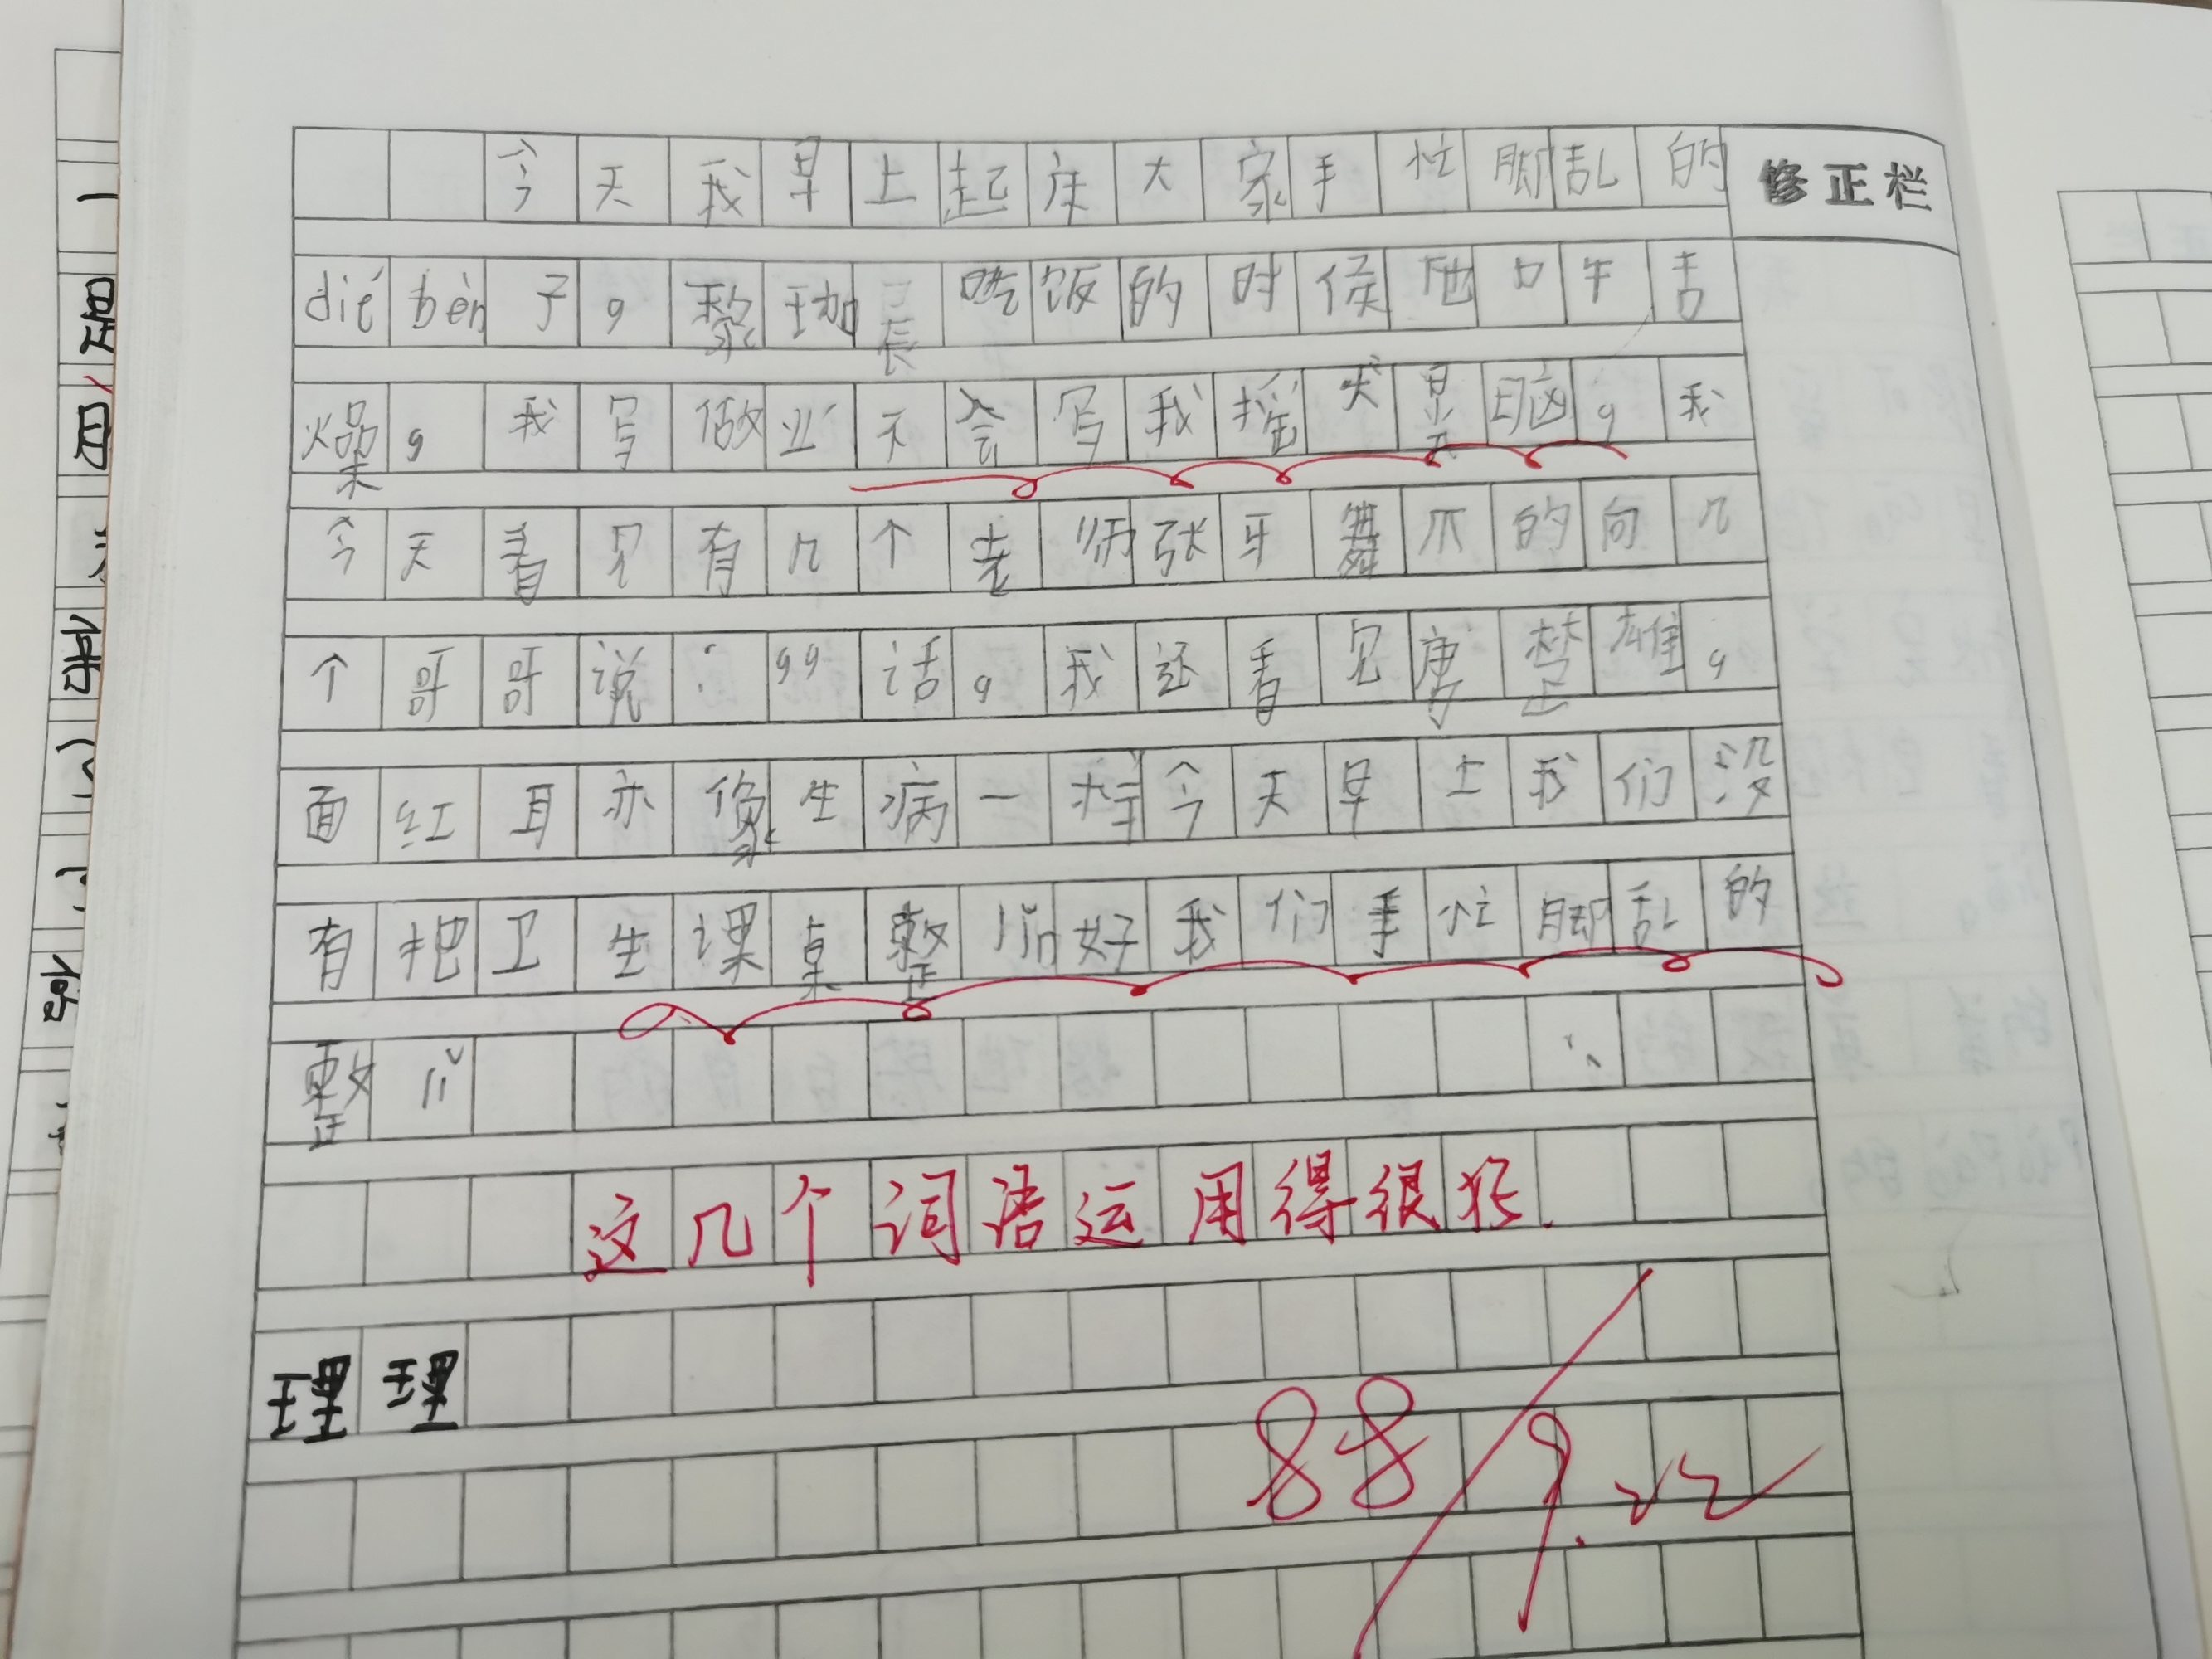 今天我早上起床大家手忙脚乱的
修正栏
dié bèn子，黎珈辰吃饭的时候他口干舌
燥，我写做业不会写我摇头晃脑，我
今天看见有几个老师张牙舞爪的向几
个哥哥说：“”话。我还看见唐楚雄，
面红耳赤像生病一样今天早上我们没
有把卫生课桌整li好我们手忙脚乱的
整lǐ
这几个词语运用得很好.
理理
88
9.22